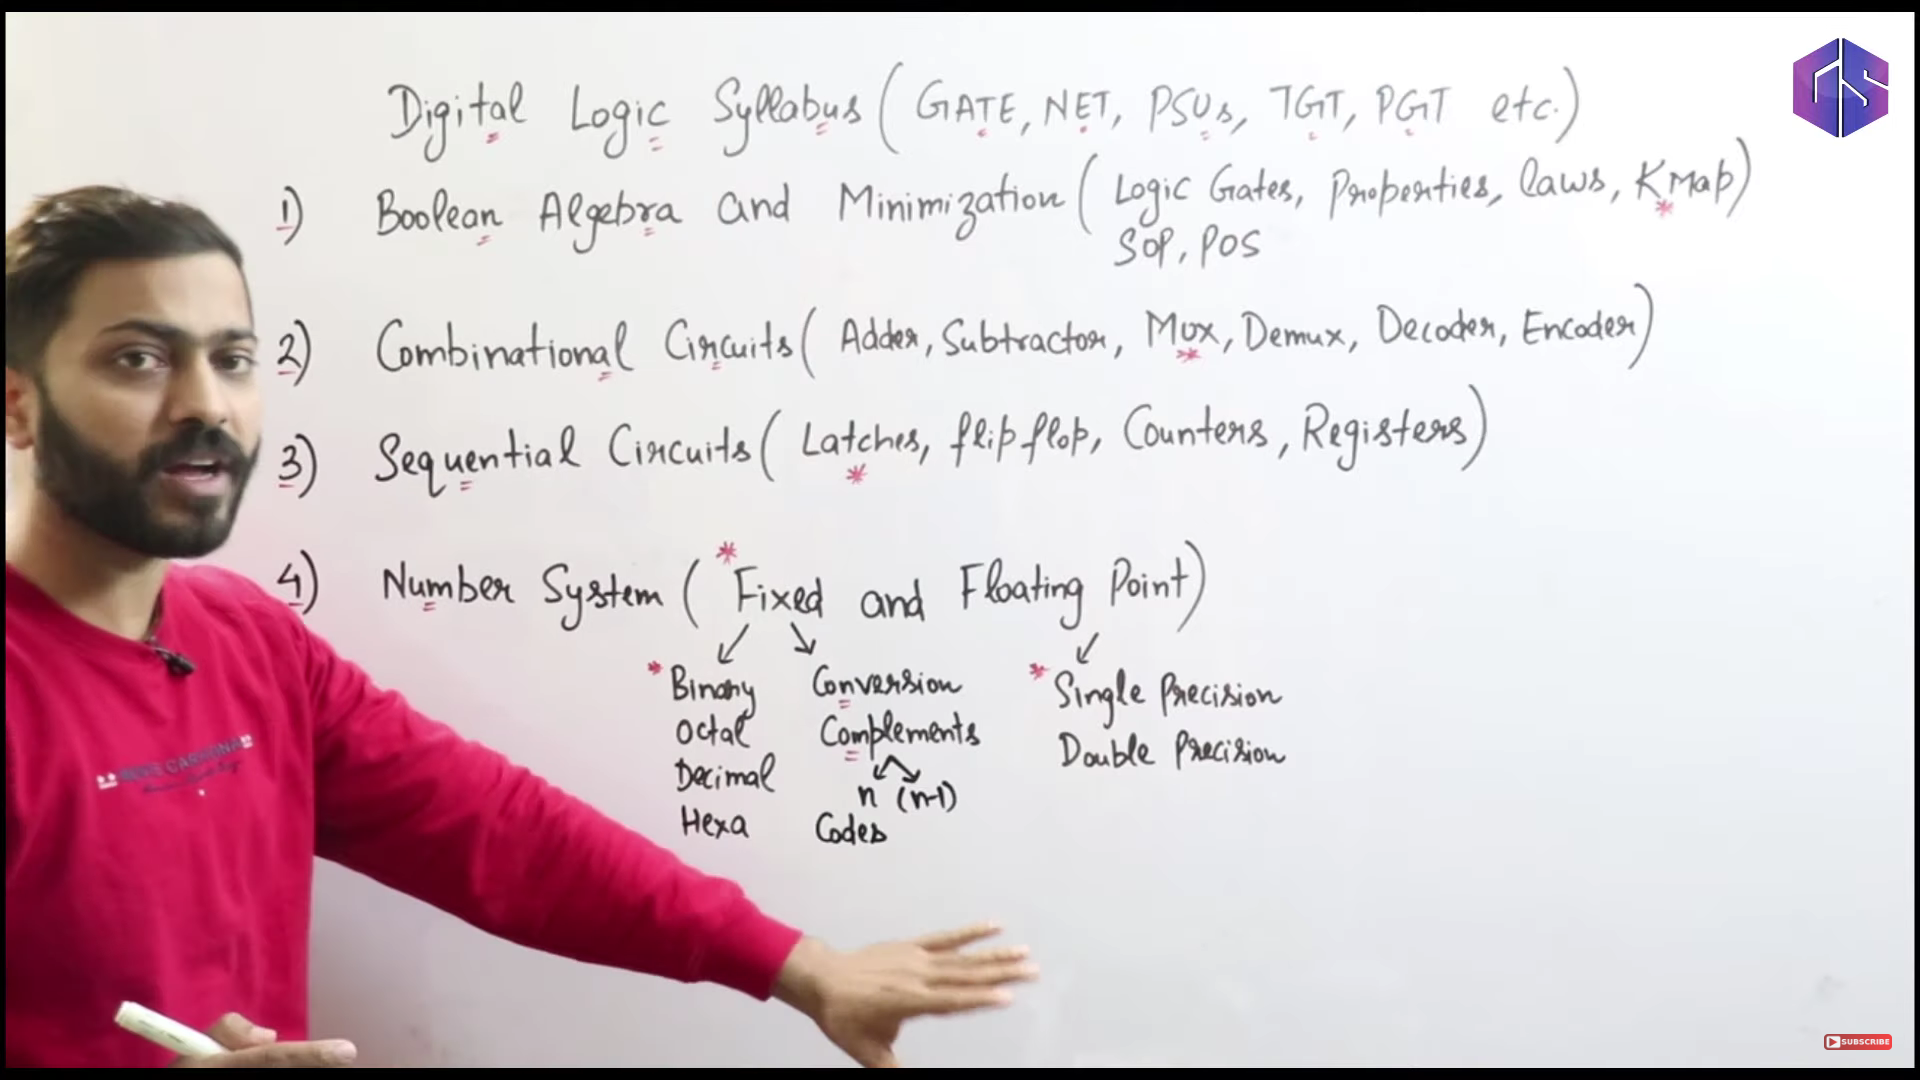 Digital Logic Syllabus ( GATE, NET, PSUs, TGT, PGT etc.)
1) Boolean Algebra and Minimization ( Logic Gates, Properties, laws, K Map)
SOP, POS
2) Combinational Circuits ( Adder, Subtractor, Mux, Demux, Decoder, Encoder)
3) Sequential Circuits ( Latches, flip flop, Counters, Registers)
4) Number System ( Fixed and Floating Point)
Binary
Octal
Decimal
Hexa
Conversion
Complements
n (n-1)
Codes
Single Precision
Double Precision
GS
SUBSCRIBE